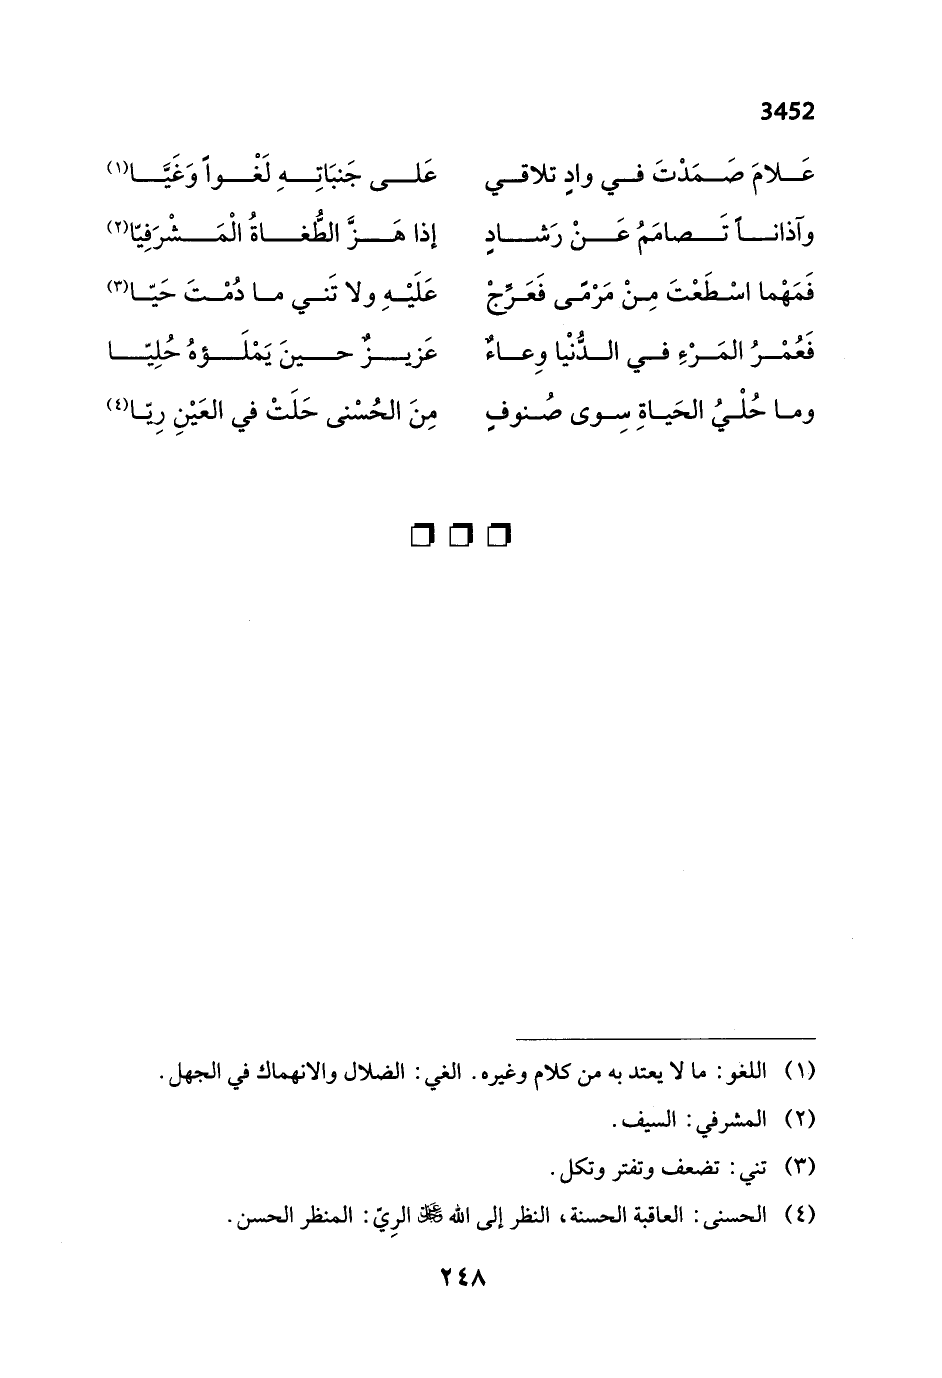 3452
عَلامَ صَمَدْتَ في وادٍ تلاقي عَلى جَنبَاتِهِ لَغْواً وَغَيَّا(١)
وآذاناً تَصامَمُ عَنْ رَشادٍ إذا هَزَّ الطُّغاةُ الْمَشْرَفِيّا(٢)
فَمَهْما اسْطَعْتَ مِنْ مَرْمًى فَعَرِّجْ عَلَيْهِ ولا تَني ما دُمْتَ حَيّا(٣)
فَعُمْرُ المَرْءِ في الدُّنْيا وِعاءٌ عَزيزٌ حينَ يَمْلَؤهُ حُلِيّا
وما حُلْيُ الحَياةِ سِوى صُنوفٍ مِنَ الحُسْنى حَلَتْ في العَيْنِ رِيّا(٤)
(١) اللغو: ما لا يعتد به من كلام وغيره. الغي: الضلال والانهماك في الجهل.
(٢) المشرفي: السيف.
(٣) تني: تضعف وتفتر وتكل.
(٤) الحسنى: العاقبة الحسنة، النظر إلى الله ﷻ الرِيّ: المنظر الحسن.
٢٤٨